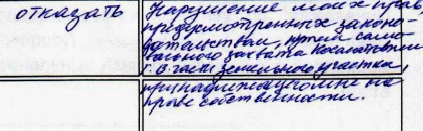 отказать
Нарушение моих прав,
предусмотренных законо-
дательством, путем само-
вольного захвата Косматовым
г.О части земельного участка,
принадлежащего мне на
праве собственности.